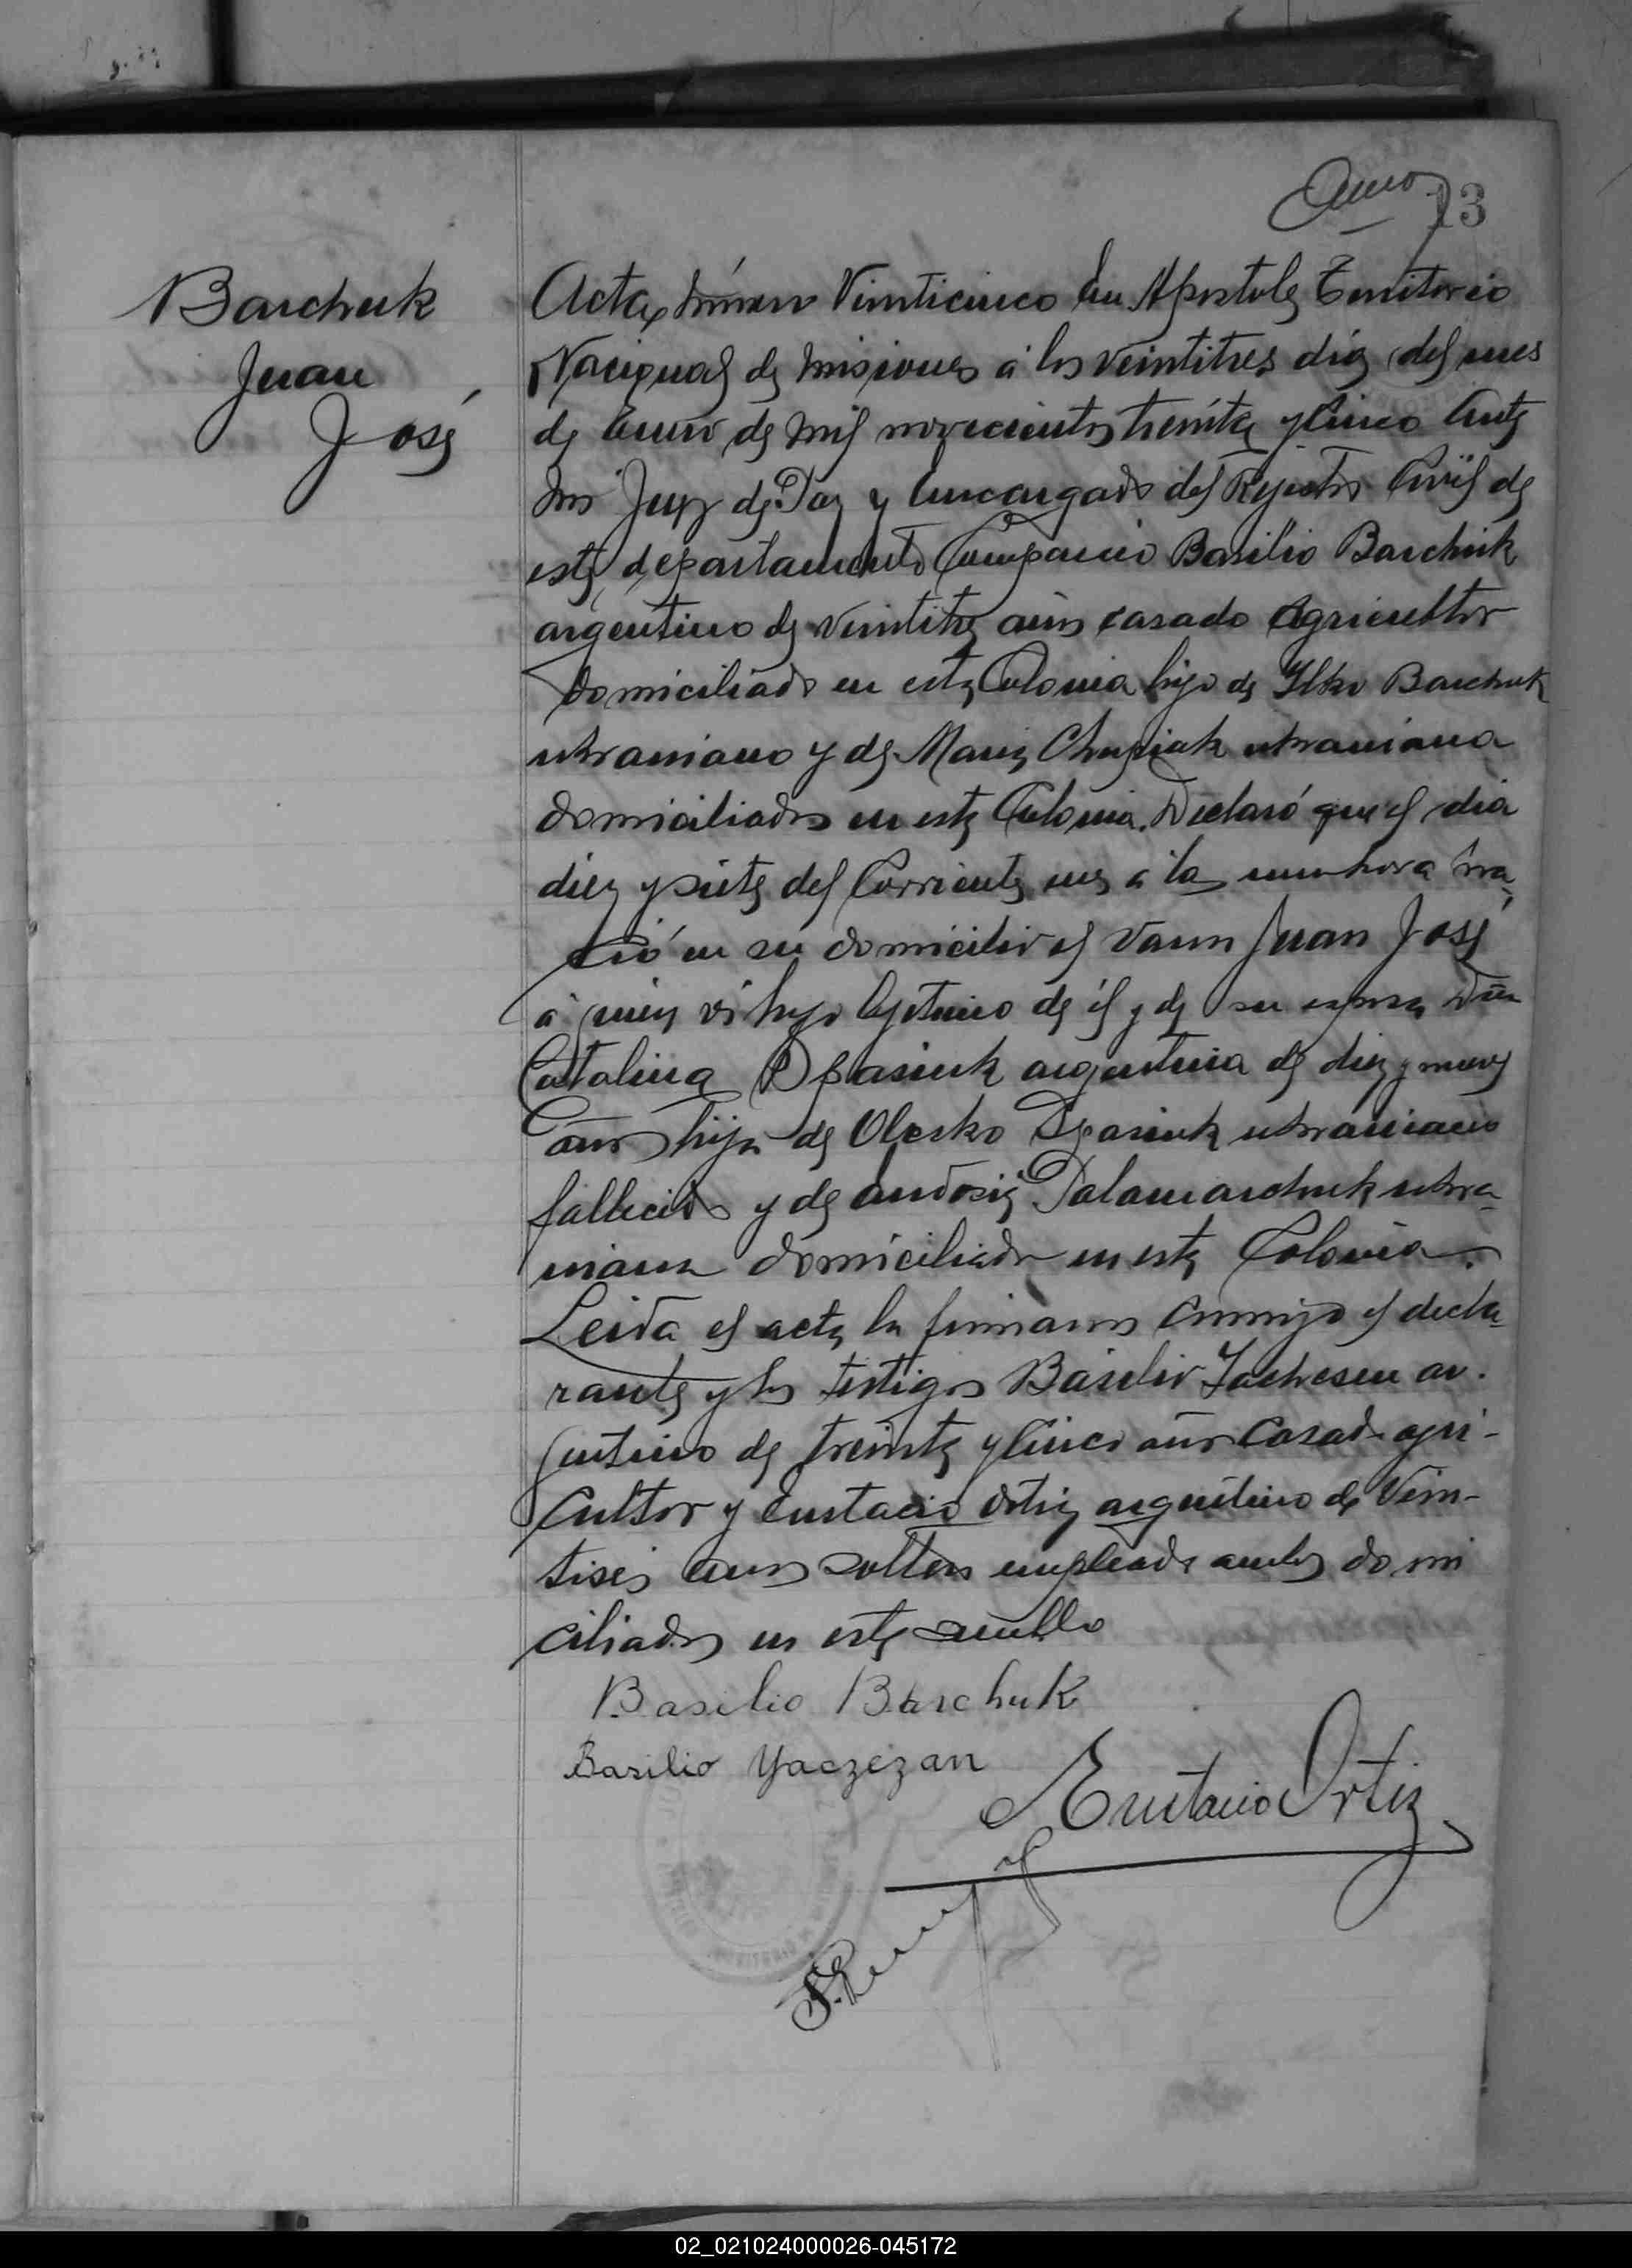 Enero
13
Barchuk
Juan
José
Acta número Veinticinco En Apostoles Territorio
Nacional de Misiones á los veintitres dias del mes
de Enero de mil novecientos treinta y Cinco Ante
mi Juez de Paz y Encargado del Rejistro Civil de
este departamento Comparecio Basilio Barchuk
argentino de veintitres años casado Agricultor
domiciliado en esta Colonia hijo de Ilko Barchuk
ukraniano y de Maria ukraniana
domiciliados en esta Colonia. Declaró que el dia
diez y siete del Corriente mes a la una hora na
ció en su domicilio el Varon Juan José
á quien es hijo lejitimo de él y de su esposa Dña
Catalina Opasiuk argentina de diez y nueve
años hija de Olesko Opasiuk ukraniano
fallecido y de Palamarchuk ukra
niana domiciliada en esta Colonia.
Leida el acta la firmaron Conmigo el decla
rante y los testigos Basilio ar.
jentino de treinta y Cinco años Casado agri-
Cultor y Eustacio Ortiz argentino de Vein-
tiseis años soltero empleado ambos domi
ciliados en este pueblo
Basilio Barchuk
Basilio Yaczezan
Eustacio Ortiz
02_021024000026-045172